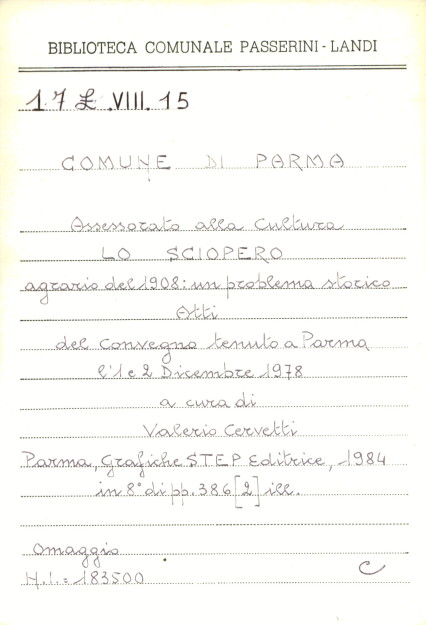 BIBLIOTECA COMUNALE PASSERINI - LANDI
17 £ .VIII. 15
COMUNE DI PARMA
Assessorato alla Cultura
LO SCIOPERO
agrario del 1908: un problema storico
Atti
del Convegno tenuto a Parma
l'1 e 2 Dicembre 1978
a cura di
Valerio Cervetti
Parma, Grafiche STEP Editrice, 1984
in 8° di pp. 386 [2] ill.
Omaggio
N.I.= 183500 C